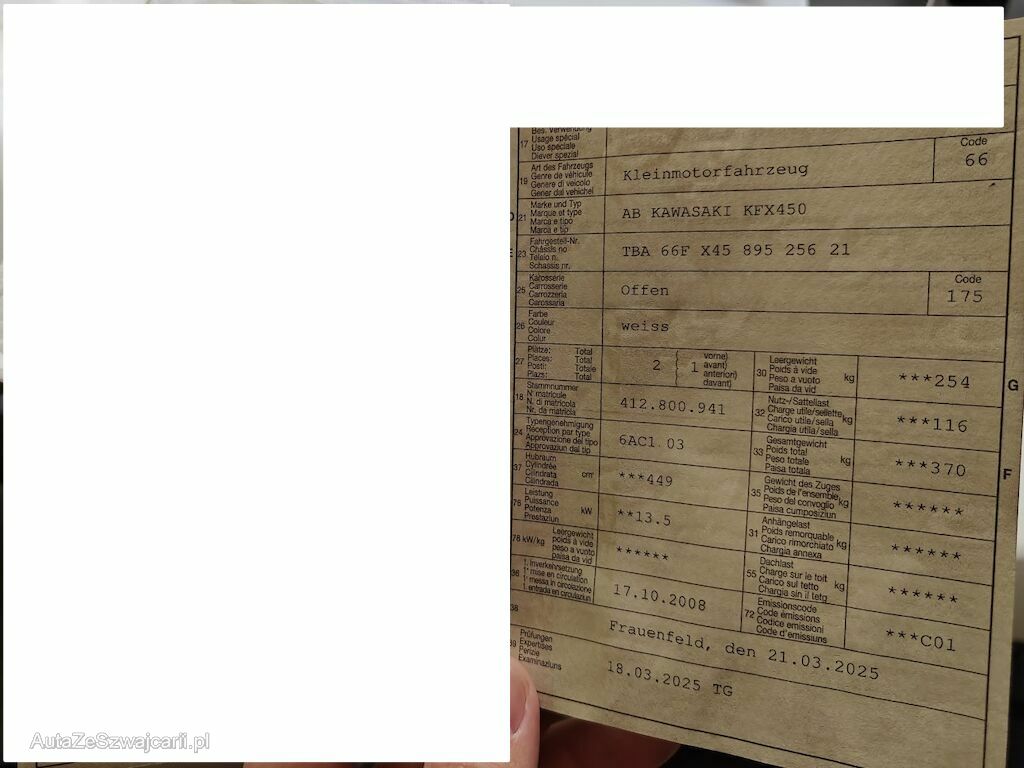 Bes. Verwendung
17 Usage spécial
Uso speciale
Diever spezial
19 Art des Fahrzeugs
Genre de véhicule
Genere di veicolo
Gener dal vehichel
Kleinmotorfahrzeug
Code
66
D 21 Marke und Typ
Marque et type
Marca e tipo
Marca e tip
AB KAWASAKI KFX450
E 23 Fahrgestell-Nr.
Châssis no
Telaio n.
Schassis nr.
TBA 66F X45 895 256 21
25 Karosserie
Carrosserie
Carrozzeria
Carossaria
Offen
Code
175
26 Farbe
Couleur
Colore
Colur
weiss
27 Plätze: Total
Places: Total
Posti: Totale
Plazs: Total
2 ( 1 vorne)
avant)
anteriori)
davant)
30 Leergewicht
Poids à vide
Peso a vuoto
Paisa da vid
kg
***254
G
18 Stammnummer
N° matricule
N. di matricola
Nr. da matricla
412.800.941
32 Nutz-/Sattellast
Charge utile/sellette
Carico utile/sella
Chargia utila/sella
kg
***116
24 Typengenehmigung
Réception par type
Approvazione del tipo
Approvaziun dal tip
6AC1 03
33 Gesamtgewicht
Poids total
Peso totale
Paisa totala
kg
***370
F
37 Hubraum
Cylindrée
Cilindrata
Cilindrada
cm³
***449
35 Gewicht des Zuges
Poids de l'ensemble
Peso del convoglio
Paisa cumposiziun
kg
******
76 Leistung
Puissance
Potenza
Prestaziun
kW
**13.5
31 Anhängelast
Poids remorquable
Carico rimorchiato
Chargia annexa
kg
******
78 kW/kg Leergewicht
poids à vide
peso a vuoto
paisa da vid
******
55 Dachlast
Charge sur le toit
Carico sul tetto
Chargia sin il tetg
kg
******
36 1. Inverkehrsetzung
1re mise en circulation
1a messa in circolazione
1. entrada en circulaziun
17.10.2008
72 Emissionscode
Code émissions
Codice emissioni
Code d'emissiuns
***C01
38
Frauenfeld, den 21.03.2025
39 Prüfungen
Expertises
Perizie
Examinaziuns
18.03.2025 TG
AutaZeSzwajcarii.pl